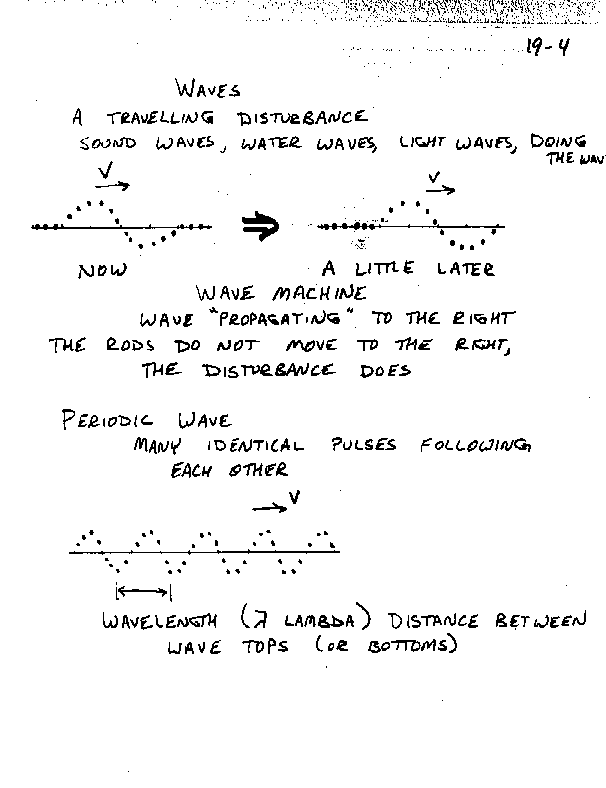 19-4
WAVES
A TRAVELLING DISTURBANCE
SOUND WAVES, WATER WAVES, LIGHT WAVES, DOING
THE WAV
V
V
NOW
A LITTLE LATER
WAVE MACHINE
WAVE "PROPAGATING" TO THE RIGHT
THE RODS DO NOT MOVE TO THE RIGHT,
THE DISTURBANCE DOES
PERIODIC WAVE
MANY IDENTICAL PULSES FOLLOWING
EACH OTHER
V
WAVELENGTH (λ LAMBDA) DISTANCE BETWEEN
WAVE TOPS (OR BOTTOMS)